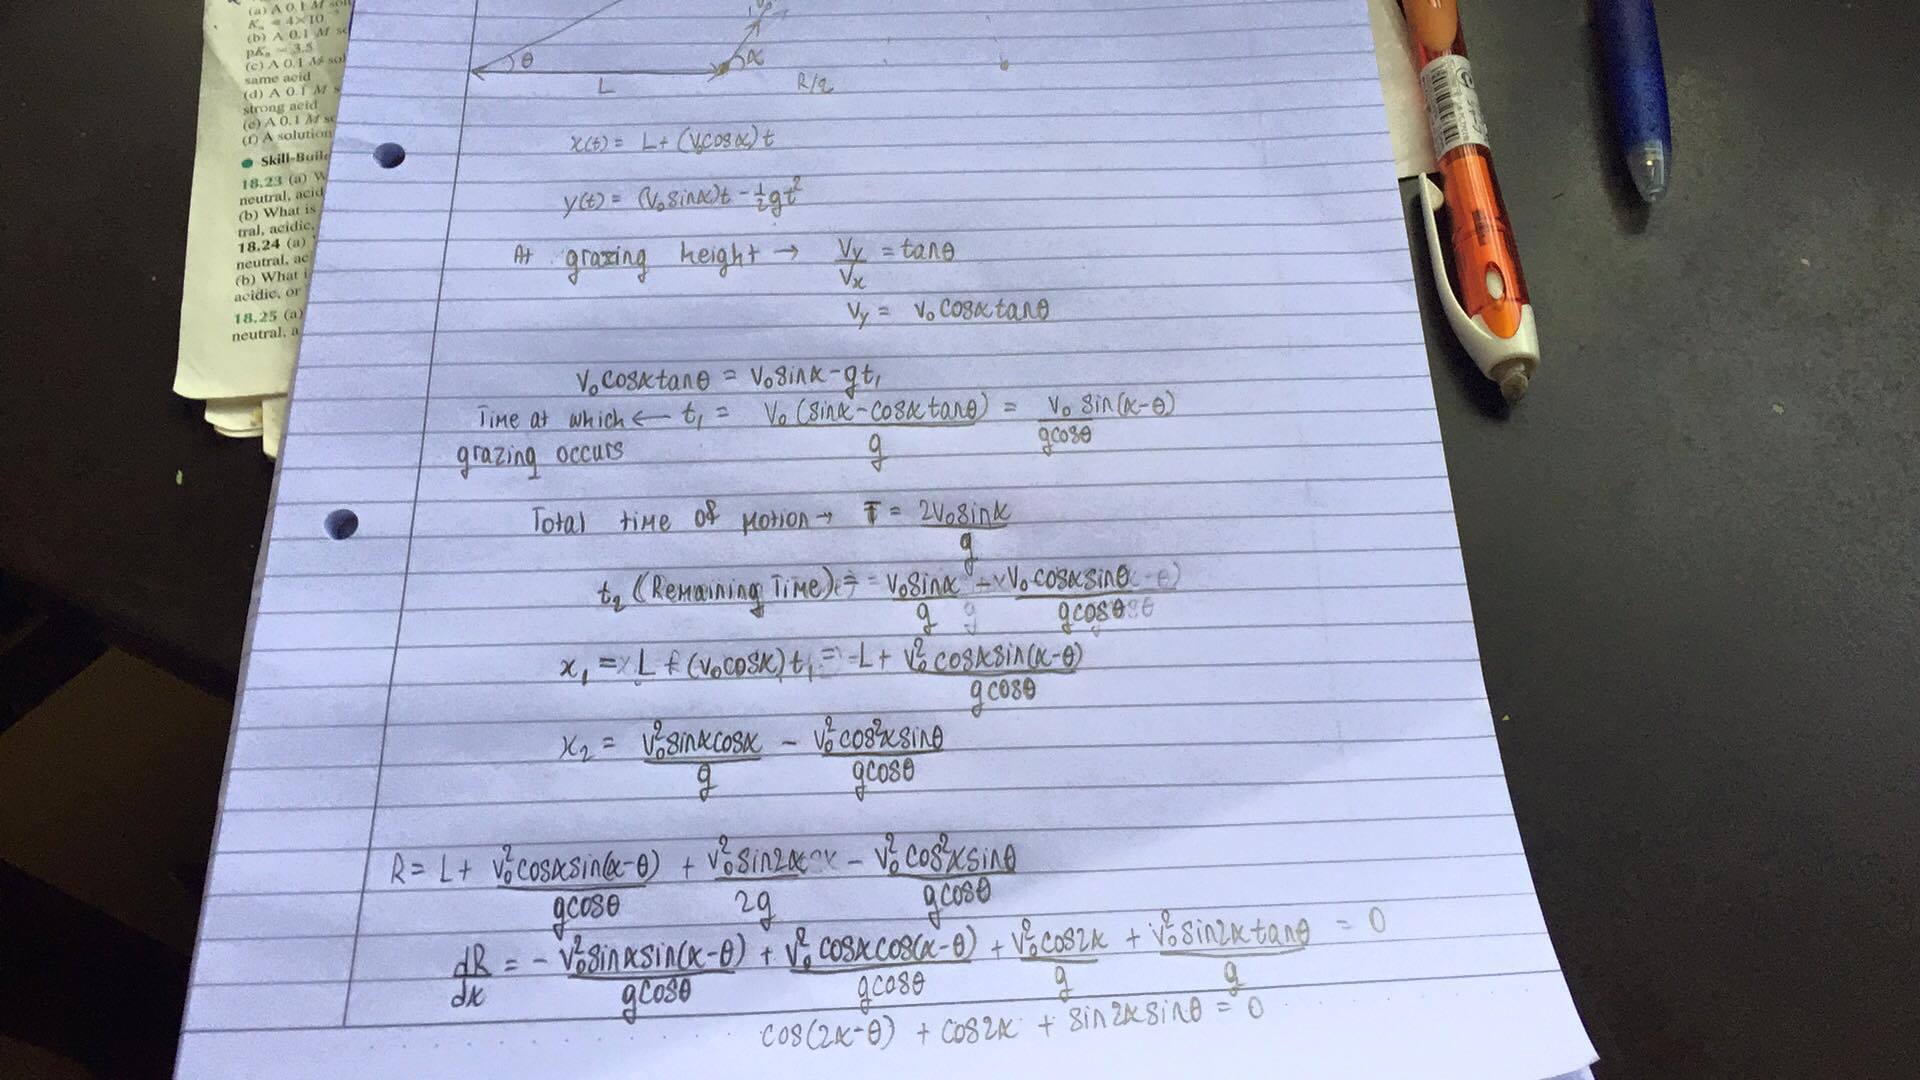 (a) A 0.1 M
Kₐ = 4×10
(b) A 0.1 M
pKₐ = 3.5
(c) A 0.1 M sol
same acid
(d) A 0.1 M s
strong acid
(e) A 0.1 M
(f) A solution
Skill-Build
18.23 (a) W
neutral, acid
(b) What is
tral, acidic,
18.24 (a)
neutral, ac
(b) What i
acidic, or
18.25 (a)
neutral, a
θ α
L R/2
x(t) = L + (v₀cosα)t
y(t) = (v₀sinα)t - ½gt²
At grazing height → Vy/Vx = tanθ
Vy = v₀cosαtanθ
v₀cosαtanθ = v₀sinα - gt₁
Time at which ← t₁ = v₀(sinα - cosαtanθ)/g = v₀ sin(α-θ)/gcosθ
grazing occurs
Total time of motion → T = 2v₀sinα/g
t₂ (Remaining Time) = v₀sinα/g + v₀cosαsinθ/gcosθ
x₁ = L + (v₀cosα)t₁ = L + v₀²cosαsin(α-θ)/gcosθ
x₂ = v₀²sinαcosα/g - v₀²cos²αsinθ/gcosθ
R = L + v₀²cosαsin(α-θ)/gcosθ + v₀²sin2α/2g - v₀²cos²αsinθ/gcosθ
dR/dα = - v₀²sinαsin(α-θ)/gcosθ + v₀²cosαcos(α-θ)/gcosθ + v₀²cos2α/g + v₀²sin2αtanθ/g = 0
cos(2α-θ) + cos2α + sin2αsinθ = 0